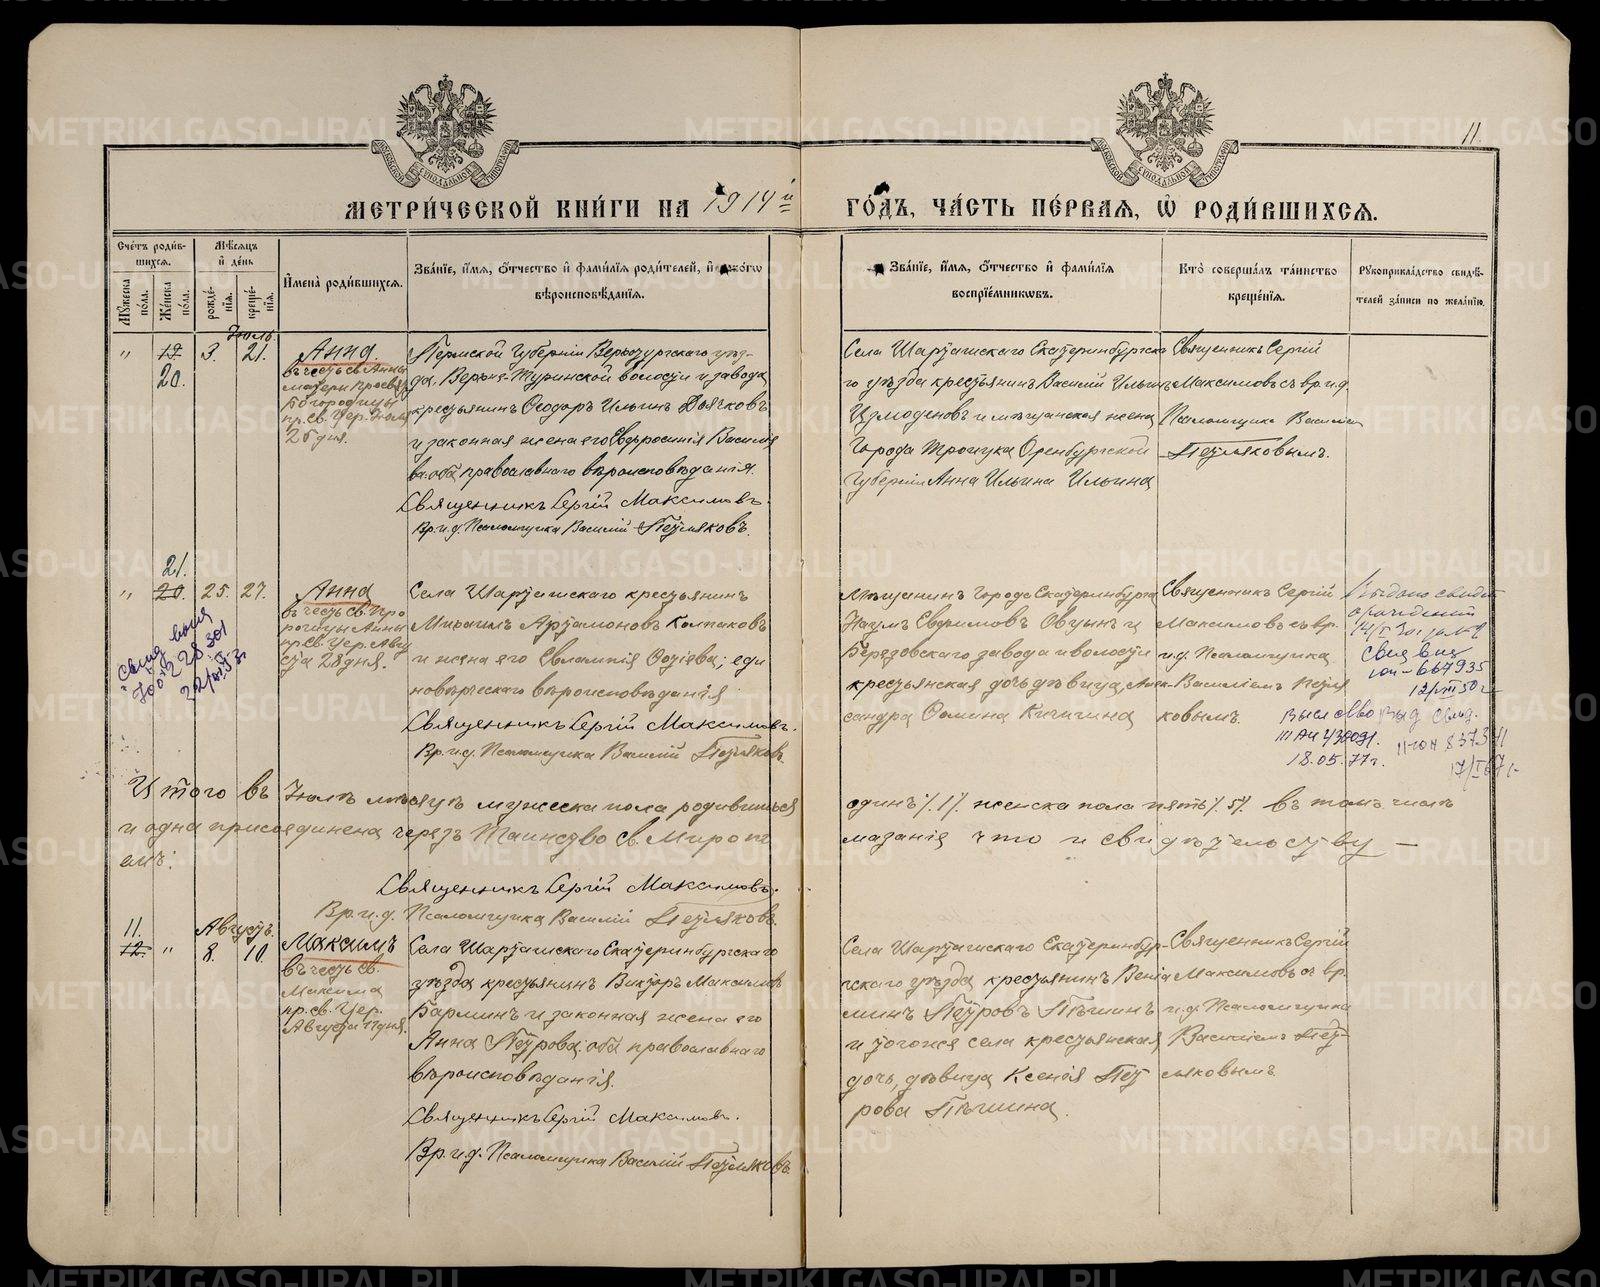 11.
МЕТРИЧЕСКОЙ КНИГИ НА 1914й ГОДЪ, ЧАСТЬ ПЕРВАЯ, Ѡ РОДИВШИХСЯ.
Счетъ родившихся.
Мужеска пола.
Женска пола.
Мѣсяцъ и день
рожденія.
крещенія.
Имена родившихся.
Званіе, имя, отчество и фамилія родителей, и какого
вѣроисповѣданія.
Званіе, имя, отчество и фамилія
воспріемниковъ.
Кто совершалъ таинство
крещенія.
Рукоприкладство свидѣ-
телей записи по желанію.
Іюль.
" 19. 3. 21.
20.
Анна.
въ честь св. Анны
матери Пресвят.
Богородицы
пр. св. Цер. Іюля
25 дня.
Пермской Губерніи Верхотурскаго уѣз-
да, Верхне-Туринской волости и завода
крестьянинъ Ѳеодоръ Ильинъ Дьячковъ
и законная жена его Евфросинія Василіе
ва, оба православнаго вѣроисповѣданія.
Священникъ Сергій Максимовъ.
Вр. и. д. Псаломщика Василій Петляковъ.
Села Шарташскаго Екатеринбургска
го уѣзда крестьянинъ Василій Ильинъ
Измоденовъ и мѣщанская жена
Города Троицка Оренбургской
Губерніи Анна Ильина Ильина
Священникъ Сергій
Максимовъ съ вр. и. д.
Псаломщика Василіем
Петляковымъ.
21.
" 20. 25. 27.
Анна
въ честь св. Про
рочицы Анны
пр. св. Цер. Авгу
ста 28 дня.
Села Шарташскаго крестьянинъ
Михаилъ Артамоновъ Колпаковъ
и жена его Евлампія Ѳозіева; еди
новѣрческаго вѣроисповѣданія
Священникъ Сергій Максимовъ.
Вр. и. д. Псаломщика Василій Петляковъ.
Мѣщанинъ Города Екатеринбурга
Наумъ Евфимовъ Овчин и
Березовскаго завода и волости
крестьянская дочь дѣвица, Алек-
сандра Ѳомина Кичигина
Священникъ Сергій
Максимовъ съ вр.
и. д. Псаломщика
Василіемъ Петля
ковымъ.
Выдано свидет
о рождении
Свид
ЮИ-667935
12/VIII 50 г
Выд свид.
III АИ 430091.
18.05.77 г.
II-ЮН 837341
Итого въ Іюлѣ мѣсяцѣ мужеска пола родившихся одинъ /1/ женска пола пять /5/ въ томъ числѣ
и одна присоединена черезъ Таинство св. Миропо мазанія что и свидѣтельству
емъ:
Священникъ Сергій Максимовъ.
Вр. и. д. Псаломщика Василій Петляковъ.
Августъ.
11.
12. " 8. 10.
Максимъ
въ честь св.
Максима
пр. св. Цер.
Августа 11 дня.
Села Шарташскаго Екатеринбургскаго
уѣзда крестьянинъ Викторъ Максимов
Барминъ и законная жена его
Анна Петрова; оба православнаго
вѣроисповѣданія.
Священникъ Сергій Максимовъ.
Вр. и. д. Псаломщика Василій Петляковъ.
Села Шарташскаго Екатеринбур-
гскаго уѣзда крестьянинъ Веніа
минъ Петровъ Пѣшинъ
и тогоже села крестьянская
дочь, дѣвица Ксенія Пет
рова Пѣшина.
Священникъ Сергій
Максимовъ съ вр.
и. д. Псаломщика
Василіемъ Пет-
ляковымъ
METRIKI.GASO-URAL.RU